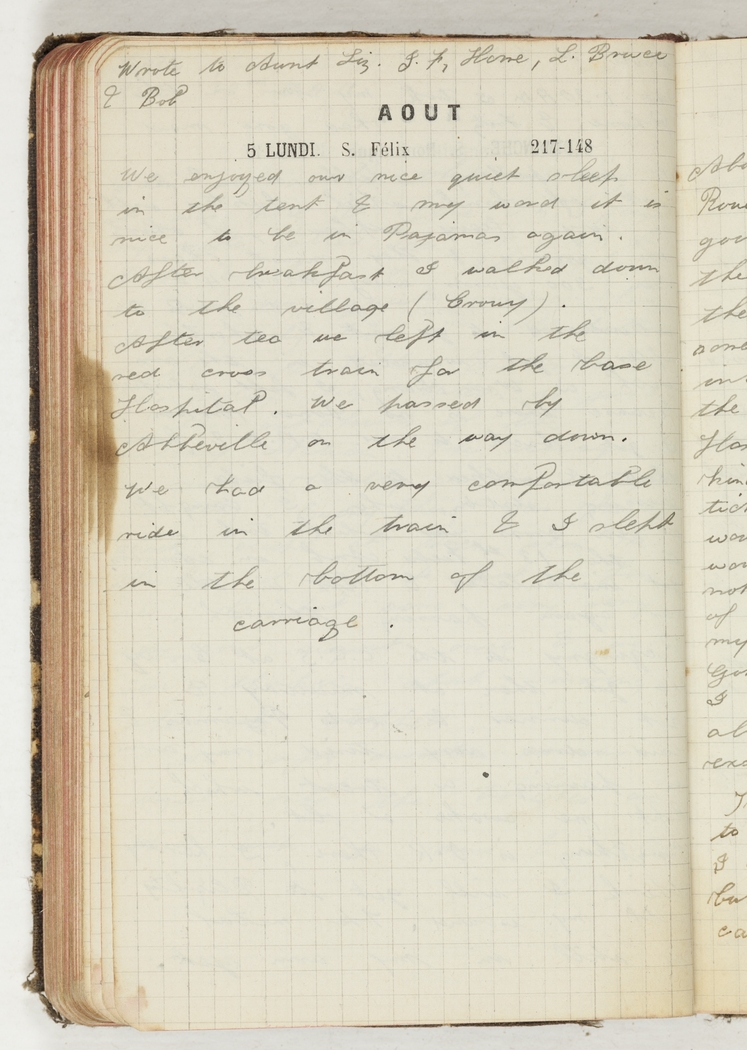 Wrote to Aunt Liz. J. F, Horne, L. Bruce
& Bob
AOUT
5 LUNDI. S. Félix 217-148
We enjoyed our nice quiet sleep
in the tent & my word it is
nice to be in Pajamas again.
After breakfast I walked down
to the village (Crouy).
After tea we left in the
red cross train for the base
Hospital. We passed by
Abbeville on the way down.
We had a very comfortable
ride in the train & I slept
in the bottom of the
carriage.
the
the
in
the
tic
not
of
my
I
to
I